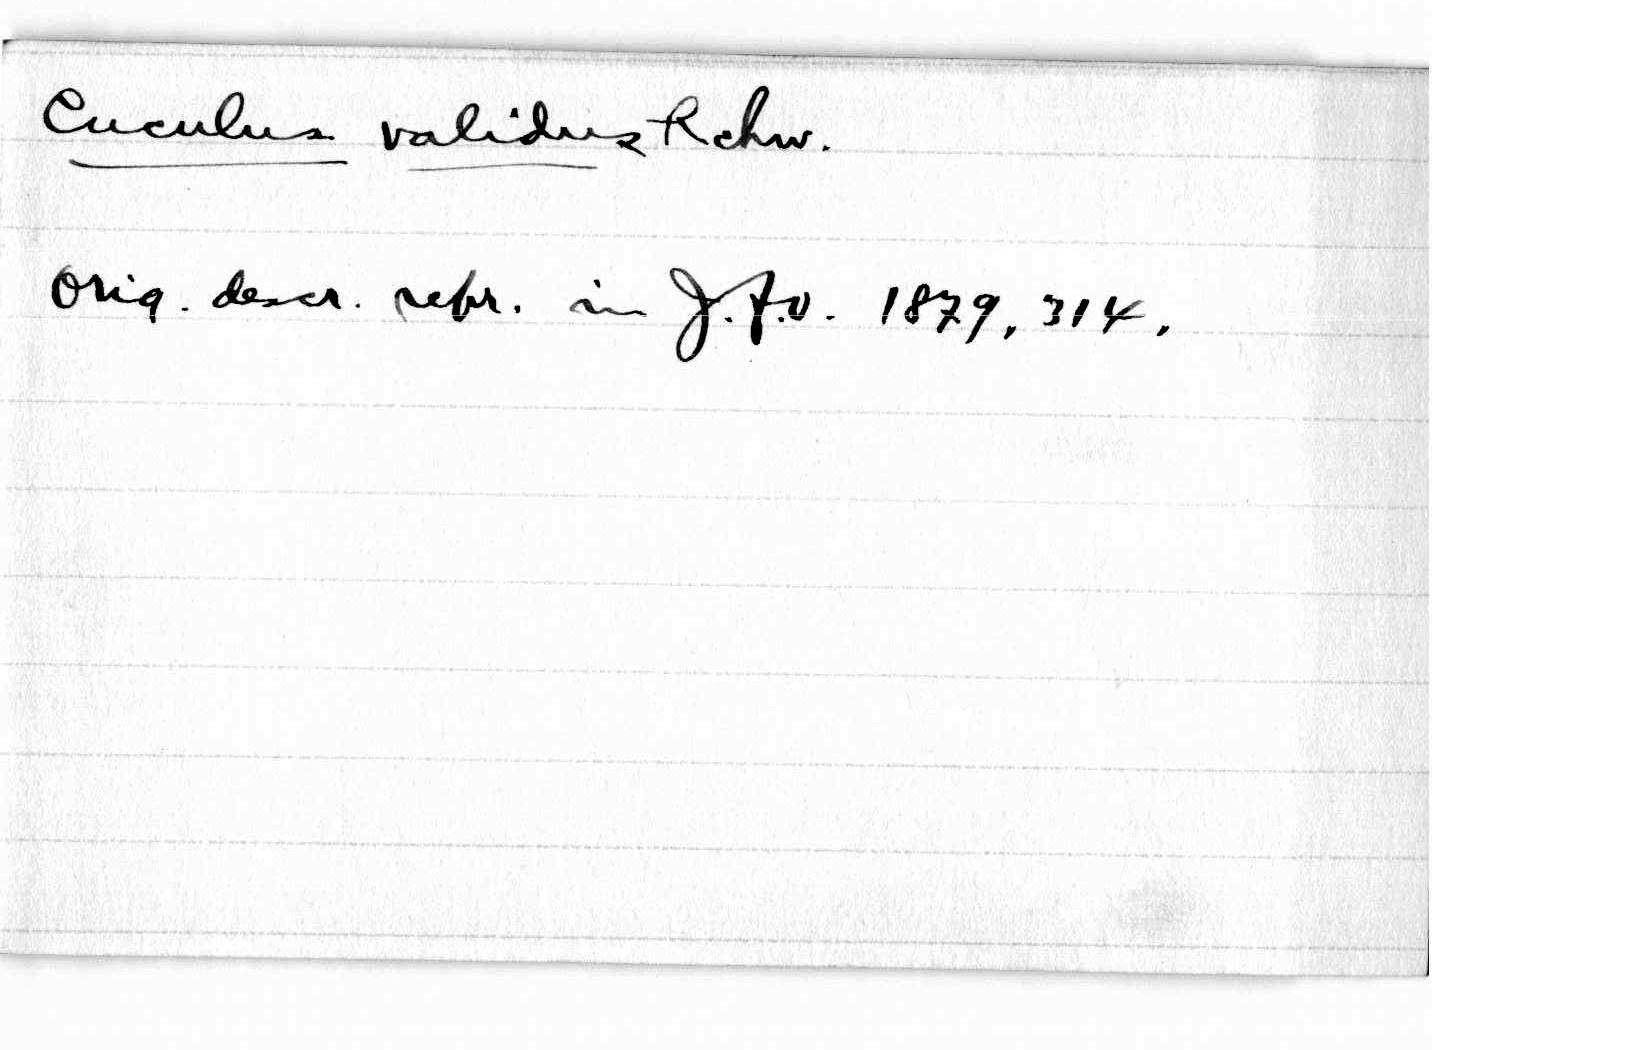 Cuculus validus Rchw.
Orig. descr. repr. in J.f.O. 1879, 314.